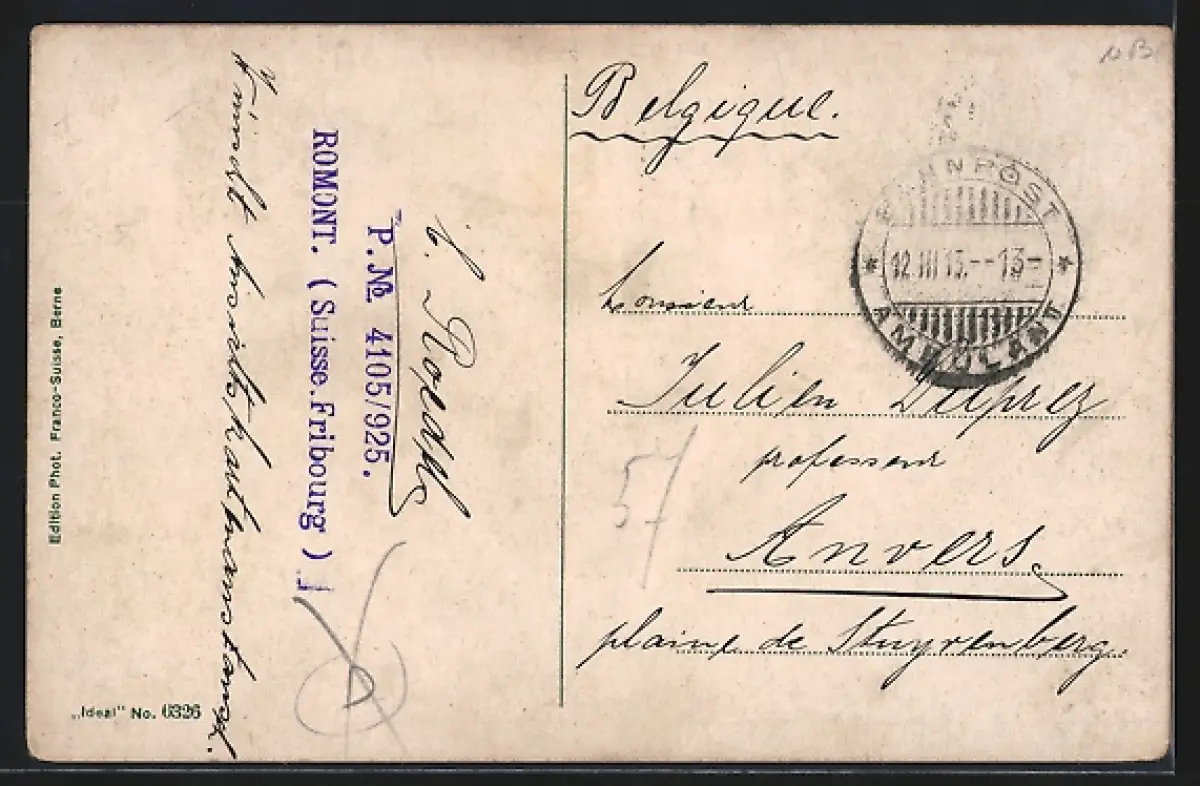 wünscht Ansichtskartenaustausch.
C.
P. № 4105/925.
ROMONT. ( Suisse. Fribourg )
Edition Phot. Franco-Suisse, Berne
„Ideal“ No. 6326
Belgique.
BAHNPOST
12.III 13.--13-
AMBULANT
Monsieur
Julien Delprez
professeur
Anvers
plaine de Stuyvenberg.
57
NB